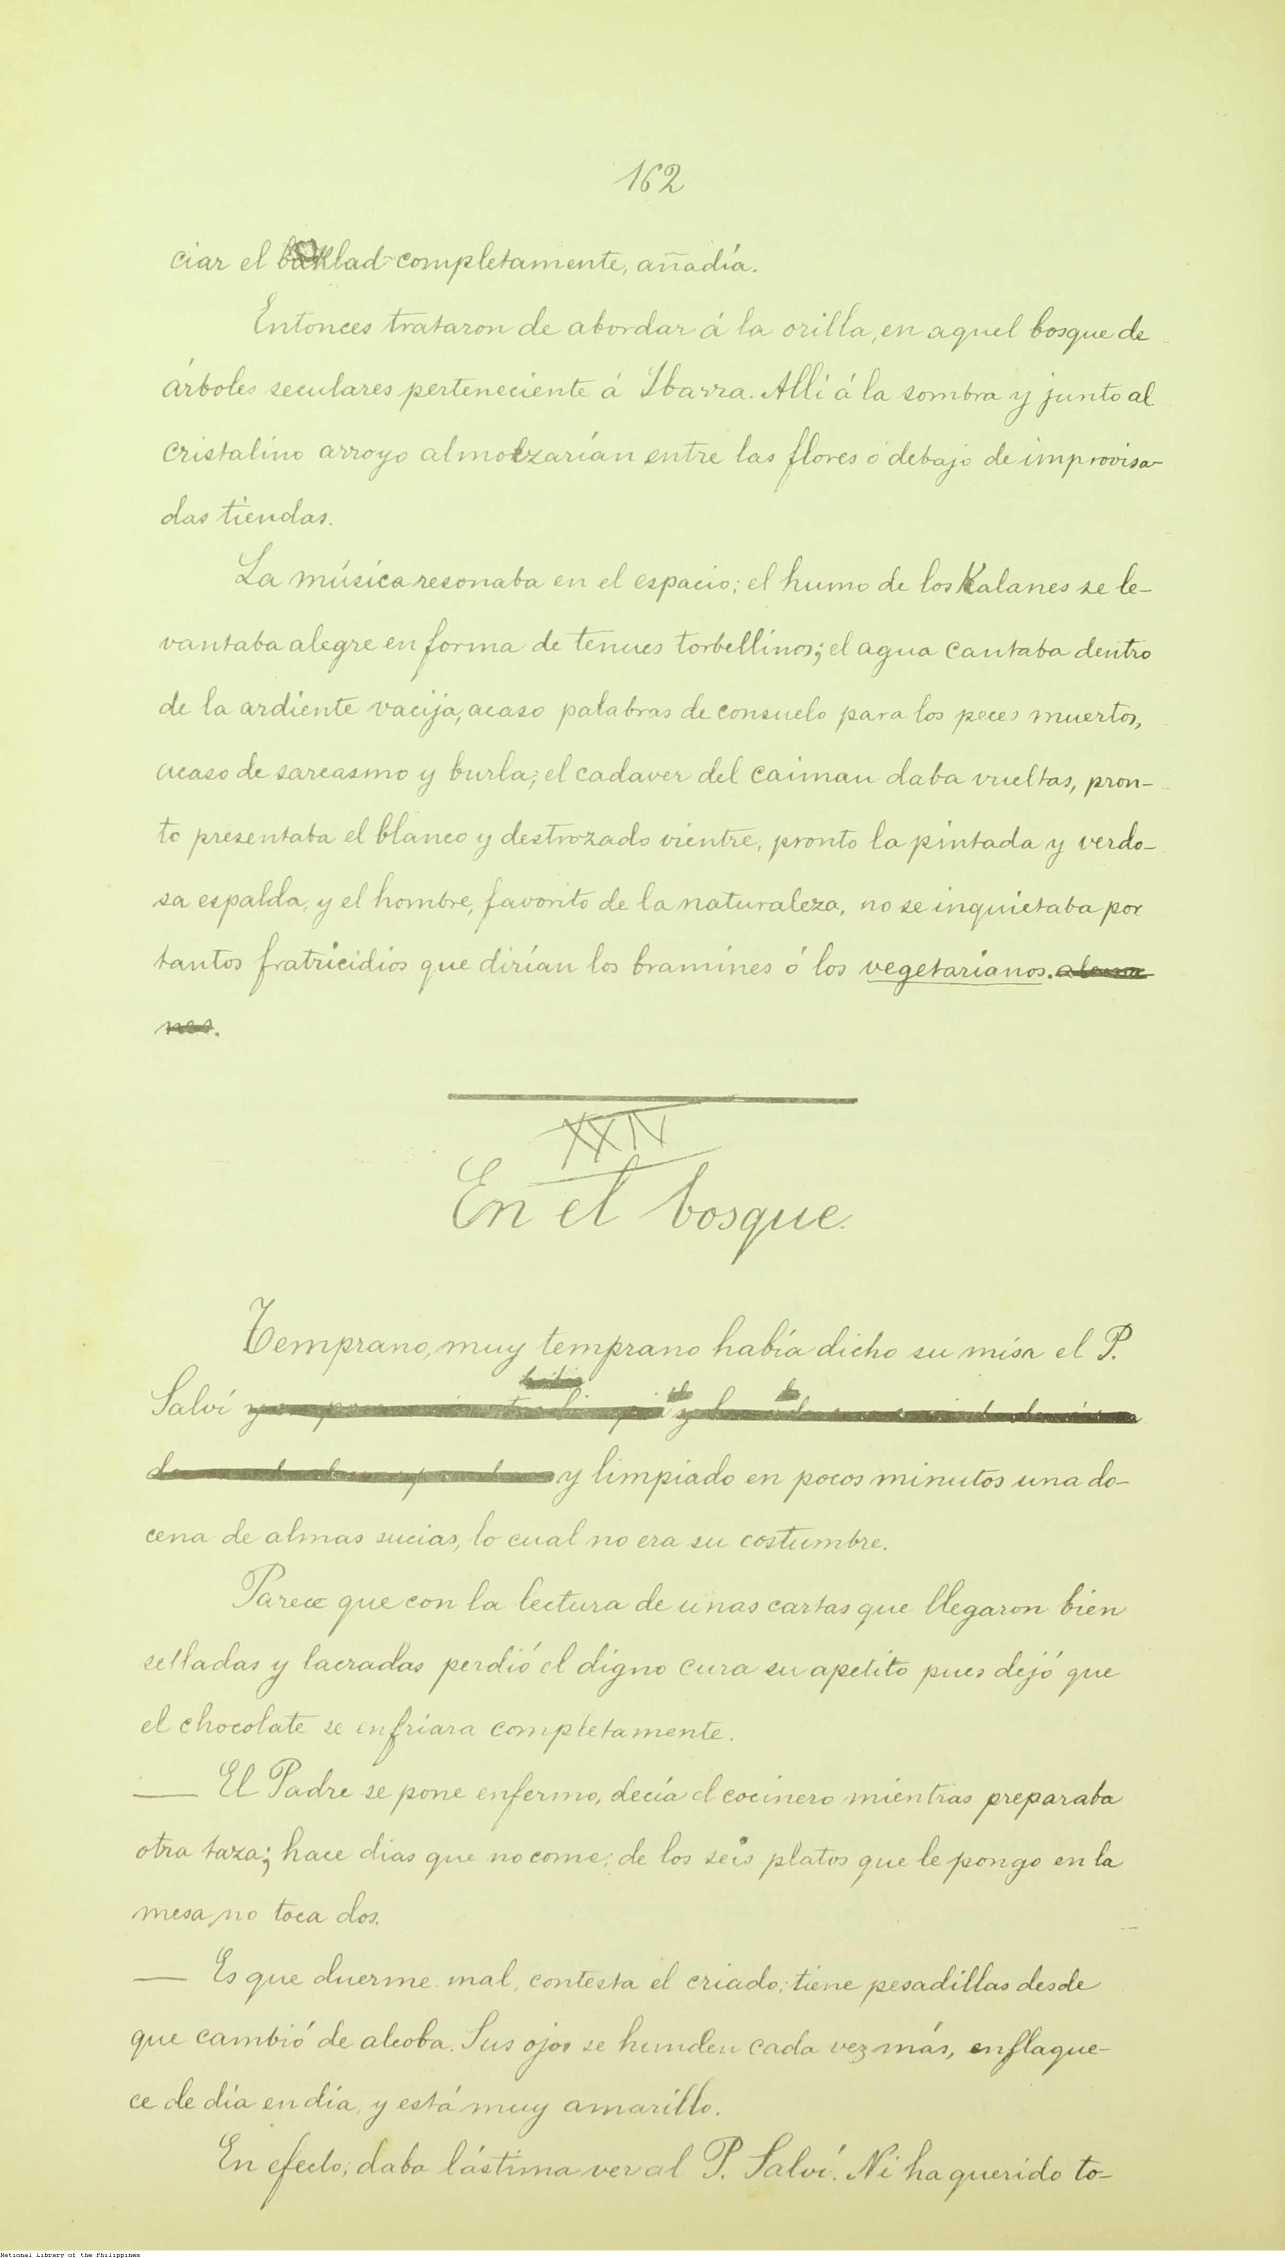 162
ciar el baklad completamente, añadía.
Entonces trataron de abordar á la orilla, en aquel bosque de
árboles seculares perteneciente á Ibarra. Allí á la sombra y junto al
cristalino arroyo almorzarían entre las flores ó debajo de improvisa-
das tiendas.
La música resonaba en el espacio; el humo de los kalanes se le-
vantaba alegre en forma de tenues torbellinos; el agua cantaba dentro
de la ardiente vacija, acaso palabras de consuelo para los peces muertos,
acaso de sarcasmo y burla; el cadaver del caiman daba vueltas, pron-
to presentaba el blanco y destrozado vientre, pronto la pintada y verdo-
sa espalda, y el hombre, favorito de la naturaleza, no se inquietaba por
tantos fratricidios que dirían los bramines ó los vegetarianos. alema
nes.
XXIV
En el bosque.
Temprano, muy temprano había dicho su misa el P.
Salví
y limpiado en pocos minutos una do-
cena de almas sucias, lo cual no era su costumbre.
Parece que con la lectura de unas cartas que llegaron bien
selladas y lacradas perdió el digno cura su apetito pues dejó que
el chocolate se enfriara completamente.
— El Padre se pone enfermo, decía el cocinero mientras preparaba
otra taza; hace dias que no come; de los seis platos que le pongo en la
mesa, no toca dos.
— Es que duerme mal, contesta el criado; tiene pesadillas desde
que cambió de alcoba. Sus ojos se hunden cada vez más, enflaque-
ce de día en día, y está muy amarillo.
En efecto, daba lástima ver al P. Salví. Ni ha querido to-
National Library of the Philippines